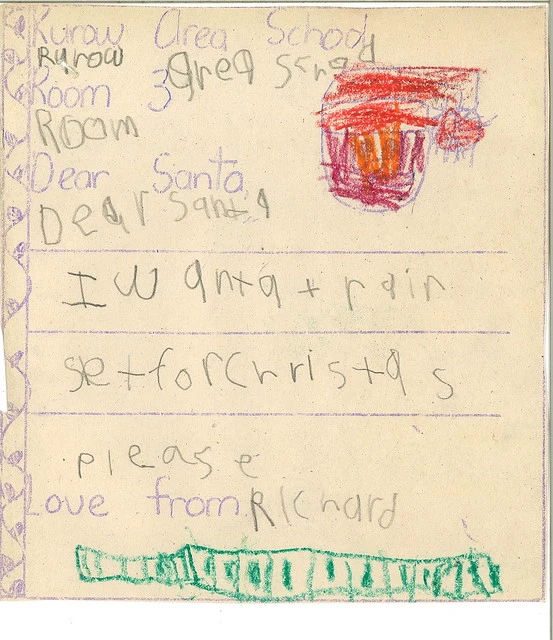 Kurow Area School
Kurow area School
Room 3
Room
Dear Santa,
Dear Santa
I want a train
set for christas
please
Love from Richard